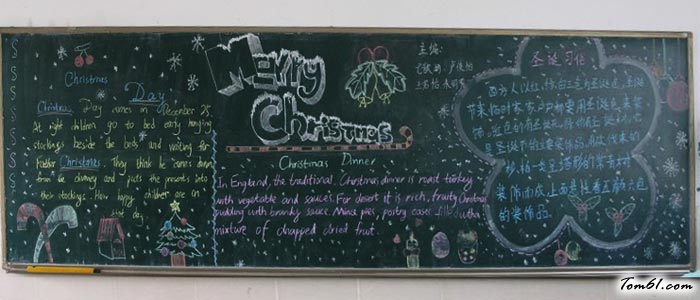 Christmas
Day
Christmas Day comes on December 25.
At night children go to bed early hanging
stockings beside the beds and waiting for
Father Christmas. They think he comes down
from the chimney and puts the presents into
their stockings. How happy children are in
that day.
Merry
Christmas
主编:
Christmas Dinner
In England, the traditional Christmas dinner is roast turkey
with vegetable and sauces. For desert it is rich, fruity Christmas
pudding with brandy sauce. Mince pies, pastry cases filled with a
mixture of chopped dried fruit.
圣诞习俗
西方人以红、绿、白三色为圣诞色，圣诞
节来临时家家户户都要用圣诞色来装
饰
是圣诞节的主要装饰品，用砍伐来的
杉、柏一类呈塔形的常青树
装饰而成，上面悬挂着五颜六色
的装饰品。
Tom61.com